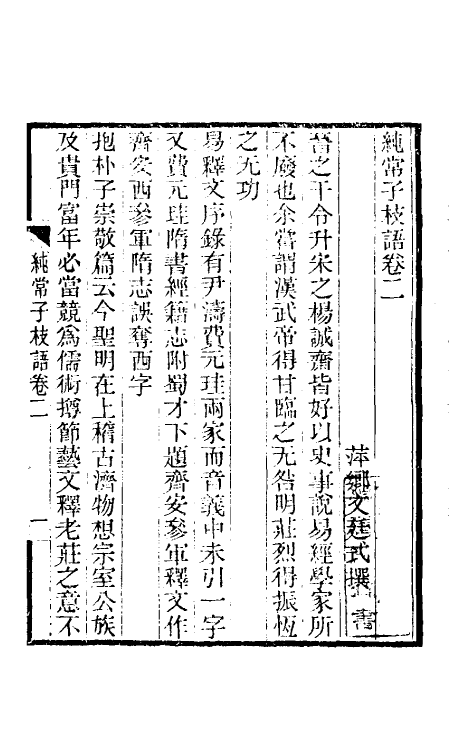 純常子枝語卷二
萍鄉文廷式撰
晉之干令升宋之楊誠齋皆好以史事說易經學家所
不廢也余嘗謂漢武帝得甘臨之无咎明莊烈得振恆
之无功
易釋文序錄有尹濤費元珪兩家而音義中未引一字
又費元珪隋書經籍志附蜀才下題齊安參軍釋文作
齊安西參軍隋志誤奪西字
抱朴子崇敬篇云今聖明在上稽古濟物想宗室公族
及貴門富年必當競爲儒術撙節藝文釋老莊之意不
純常子枝語卷二
一